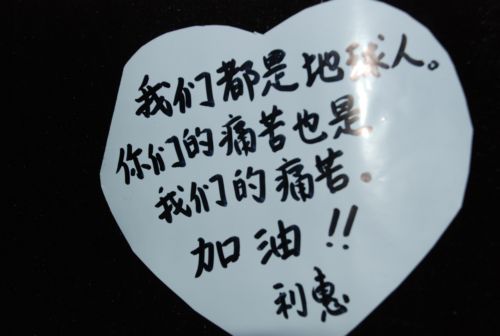 我们都是地球人。
你们的痛苦也是
我们的痛苦.
加油!!
利惠